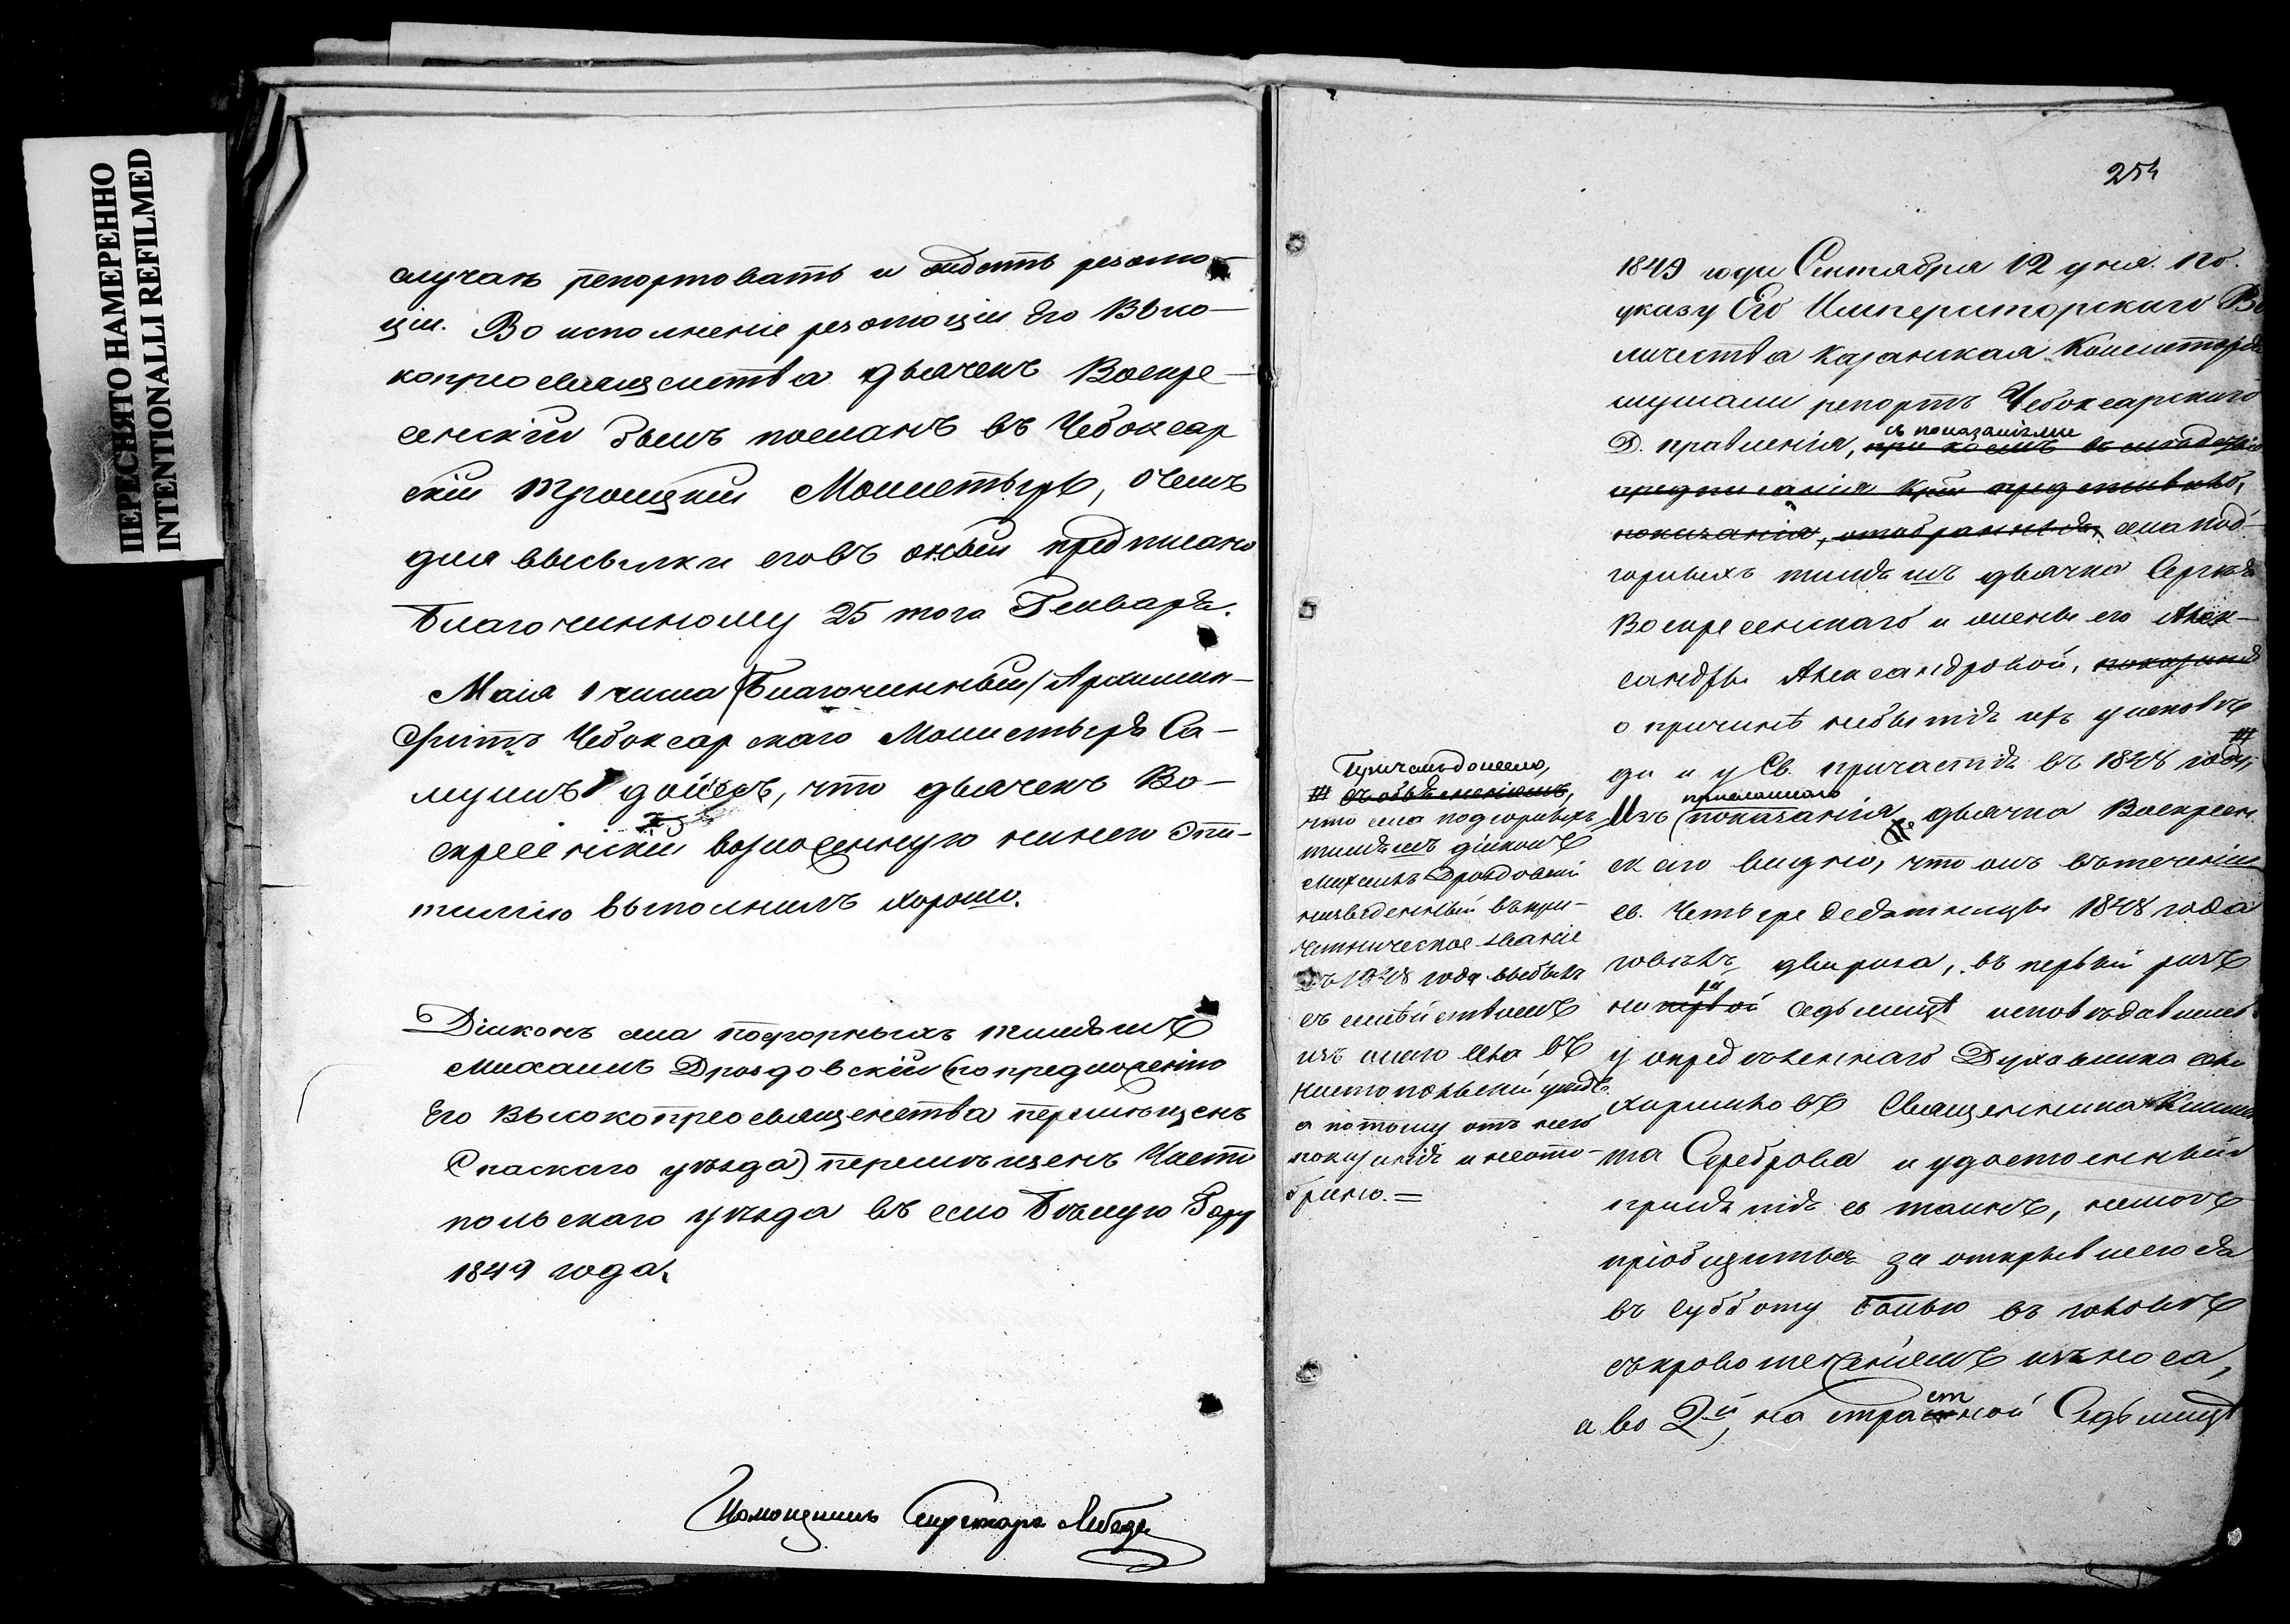 ПЕРЕСНЯТО НАМЕРЕННО
INTENTIONALLI REFILMED
случаѣ репортовать и ожидать резолю-
ціи. Во исполненіе резолюціи Его Высо-
копреосвященства дьячекъ Воскре-
сенскій былъ посланъ въ Чебоксар
скій Троицкій Монастырь, о чемъ
для высылки его въ оный предписано
Благочинному 25 того Генваря.
Маія 1 числа (Благочинный) Архиман-
дритъ Чебоксарскаго Монастыря Са-
муилъ донесъ, что дьячекъ Во-
скресенскій возложенную на него Эпи-
тимію выполнилъ хорошо.
Діаконъ села Подгорныхъ Тимяшъ
Михаилъ Дроздовскій (по предложенію
Его Высокопреосвященства перемѣщенъ
Спаскаго уѣзда) перемѣщенъ Чисто
польскаго уѣзда въ село Бѣлую Гору
1849 года.
Помощникъ Секретаря Лебеде
254
1849 года Сентября 12 дня. По
указу Его Императорскаго Ве
личества Казанская Консисторія
слушали репортъ Чебоксарскаго
съ показаніями
Д. правленія, при коемъ въ слѣдствіе
предписанія представило,
показанія, отобранныя, села Под-
горныхъ Тимяшъ дьячка Сергѣя
Воскресенскаго и жены его Алек-
сандры Александровой, показанія
о причинѣ небытія ихъ у исповѣ
ди и у Св. причастія въ 1848 году,
присланнаго
Изъ (показанія дьячка Воскресен
скаго видно, что онъ въ теченіи
св. Четыредесятницы 1848 года
говѣлъ два раза, въ первый разъ
на первой седьмицѣ исповѣдавшись
у опредѣленнаго Духовника
Священника
та Сереброва и удостоенный
принятія св таинъ, не могъ
пріобщиться за открывшеюся
въ субботу болью въ головѣ
съ кровотеченіемъ изъ носа,
а во 2й, на страстной Седьмицѣ
При чемъ донесло,
съ объясненіемъ,
что села Подгорныхъ
Тимяшъ діаконъ
Михаилъ Дроздовскій
низведенный въ при-
четническое званіе
въ 1848 году выбылъ
съ семействомъ
изъ онаго села въ
Чистопольскій уѣздъ
а потому отъ него
показанія и не ото-
брано. =